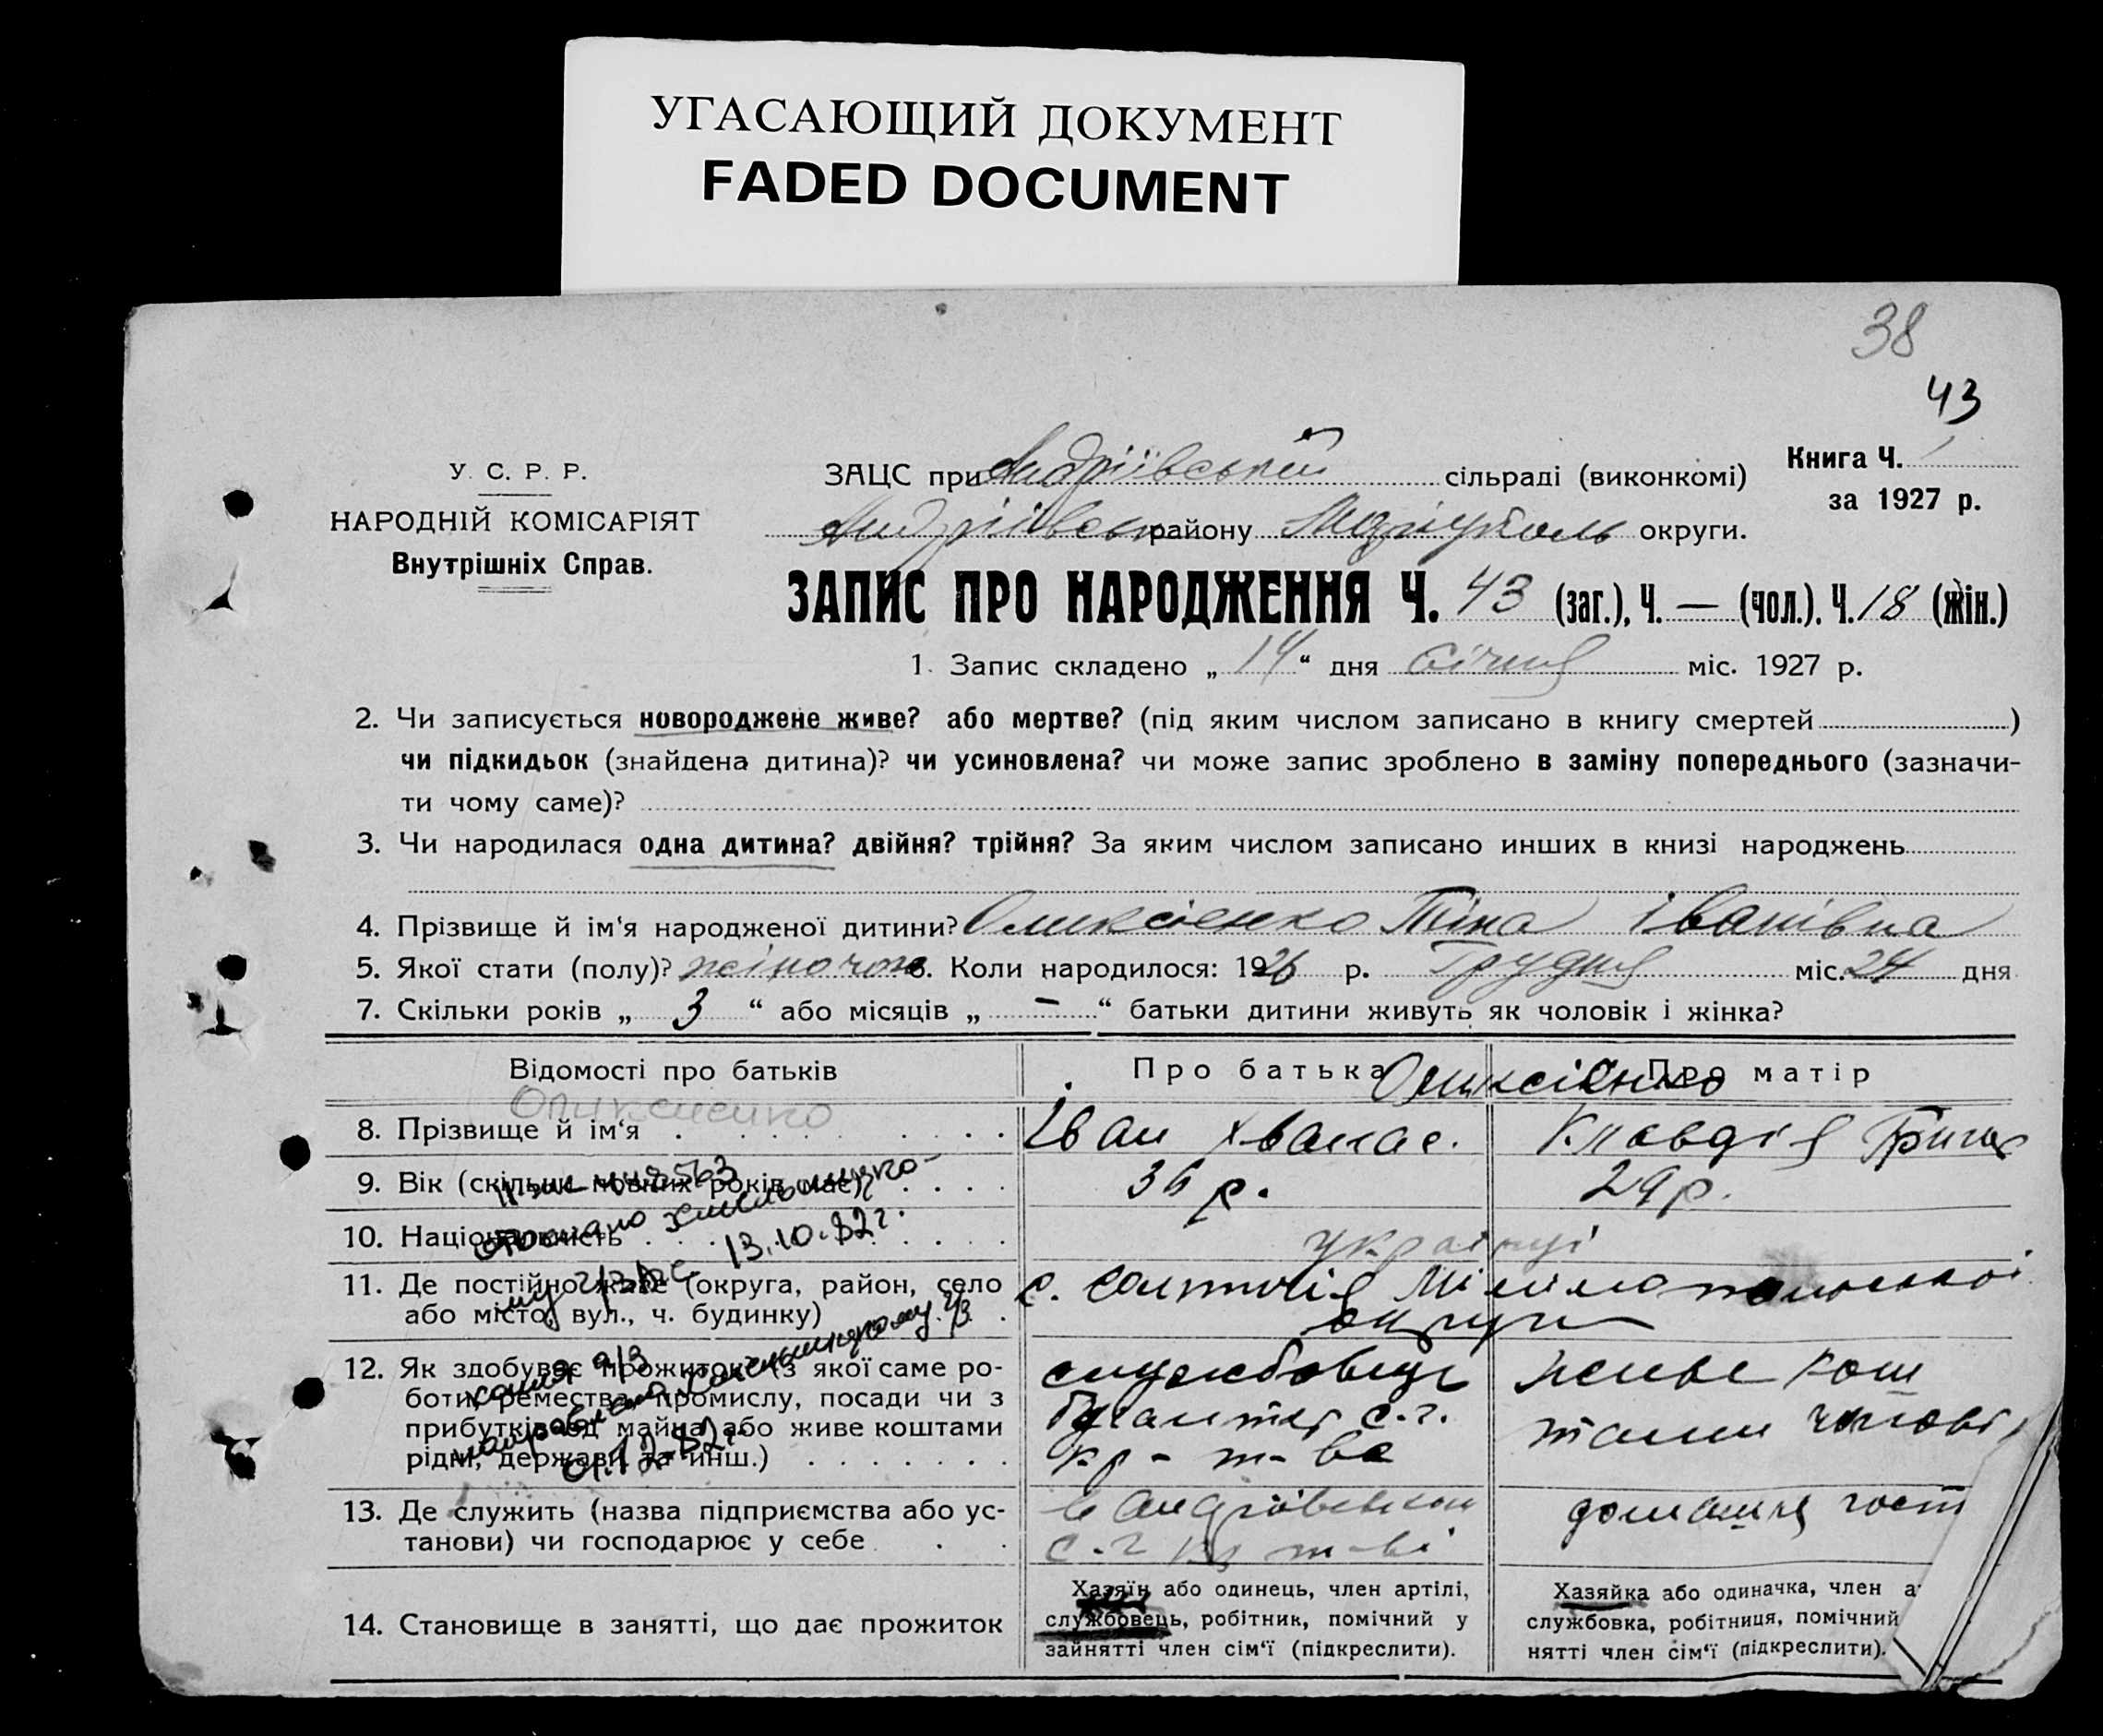 УГАСАЮЩИЙ ДОКУМЕНТ
FADED DOCUMENT
38
43
У. С. Р. Р.
НАРОДНІЙ КОМІСАРІЯТ
Внутрішніх Справ.
ЗАЦС при Андріївській сільраді (виконкомі)
Андріївськ району Маріуполь округи.
Книга Ч. 1
за 1927 р.
ЗАПИС ПРО НАРОДЖЕННЯ Ч. 43 (заг.), Ч. — (чол.), Ч. 18 (жін.)
1. Запис складено „ 14 “ дня Січня міс. 1927 р.
2. Чи записується новороджене живе? або мертве? (під яким числом записано в книгу смертей )
чи підкидьок (знайдена дитина)? чи усиновлена? чи може запис зроблено в заміну попереднього (зазначи-
ти чому саме)?
3. Чи народилася одна дитина? двійня? трійня? За яким числом записано инших в книзі народжень
4. Прізвище й ім‘я народженої дитини? Оликсієнко Тіна Іванівна
5. Якої стати (полу)? жіночої 6. Коли народилося: 1926 р. Грудня міс. 24 дня
7. Скільки років „ 3 “ або місяців „ – “ батьки дитини живуть як чоловік і жінка?
Відомості про батьків
Про батька
Про матір
Оликсієнко
8. Прізвище й ім‘я
Іван Хванас.
Клавдія Григ
9. Вік (скільки повних років має)
36 р.
29 р.
10. Національність
українці
11. Де постійно живе (округа, район, село
або місто, вул., ч. будинку)
с. Салтичія
округи
12. Як здобуває прожиток (з якої саме ро-
боти, ремества, промислу, посади чи з
прибутків од майна або живе коштами
рідні, держави та инш.)
службовець
Бугалтер с.г.
кр-т-ва
живе кош
тами чолові
13. Де служить (назва підприємства або ус-
танови) чи господарює у себе
в Андріівськом
с.г кр т-ві
домашня госп
14. Становище в занятті, що дає прожиток
Хазяїн або одинець, член артілі,
службовець, робітник, помічний у
зайнятті член сім‘ї (підкреслити).
Хазяйка або одиначка, член а
службовка, робітниця, помічний
нятті член сім‘ї (підкреслити).
13.10.82г.
01.12.82г.